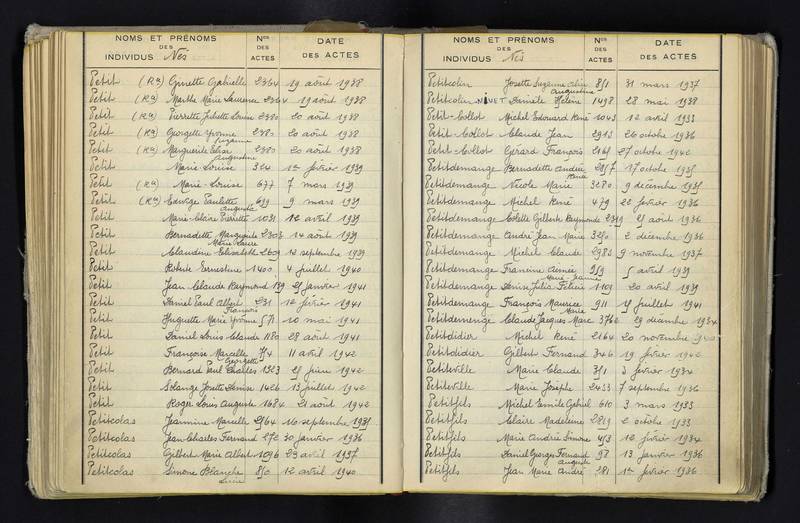 NOMS ET PRÉNOMS DES INDIVIDUS Nés
Nos DES ACTES
DATE DES ACTES
Petit (Ra) Ginette Gabrielle 2364 19 août 1938
Petit (Ra) Marthe Marie Laurence 2364 19 août 1938
Petit (Ra) Pierrette Juliette Louise 2380 20 août 1938
Petit (Ra) Georgette Yvonne Suzanne 2380 20 août 1938
Petit (Ra) Marguerite Elisa Augustine 2380 20 août 1938
Petit Marie-Louise 324 1er février 1939
Petit (Ra) Marie-Louise 677 7 mars 1939
Petit (Ra) Edwige Paulette Augusta 9 mars 1939
Petit Marie-Claire Pierrette 1031 12 avril 1939
Petit Bernadette Marguerite Marie Laure 2303 14 août 1939
Petit Claudine Elisabeth 2609 13 septembre 1939
Petit Roberte Ernestine 1400 4 juillet 1940
Petit Jean Claude Raymond janvier 1941
Petit Daniel Paul Albert François 231 12 février 1941
Petit Huguette Marie Yvonne 571 10 mai 1941
Petit Daniel Louis Claude 1180 28 août 1941
Petit Françoise Marcelle Georgette 11 avril 1942
Petit Bernard Paul Charles 1323 1942
Petit Solange Josette Denise 1426 13 juillet 1942
Petit Roger Louis Auguste 1684 21 août 1942
Petitcolas Jeannine Marcelle 2964 16 septembre 1935
Petitcolas Jean Charles Fernand 272 30 janvier 1936
Petitcolas Gilbert Marie Albert 1096 29 avril 1937
Petitcolas Simone Blanche Lucie 850 12 avril 1940
NOMS ET PRÉNOMS DES INDIVIDUS Nés
Nos DES ACTES
DATE DES ACTES
Petitcolin Josette Suzanne Augustine 851 31 mars 1937
Petitcolin NIVET Danièle Hélène 1498 28 mai 1938
Petit-Collot Michel Edouard René 1043 12 avril 1933
Petit-Collot Claude Jean 2913 26 octobre 1936
Petit-Collot Gérard François 27 octobre 1942
Petitdemange Bernadette Andrée Renée 17 octobre 1935
Petitdemange Nicole Marie 3280 9 décembre 1935
Petitdemange Michel René 479 22 février 1936
Petitdemange Colette Gilberte Raymonde 2319 août 1936
Petitdemange André Jean Marie 3250 2 décembre 1936
Petitdemange Michel Claude 2983 9 novembre 1937
Petitdemange Francine Aimée Marie-Jeanne 959 5 avril 1939
Petitdemange Denise Julia Félicie 1109 20 avril 1939
Petitdemange François Maurice Marie 911 juillet 1941
Petitdemenge Claude Jacques Marc 3762 29 décembre 1934
Petitdidier Michel René 2164 20 novembre
Petitdidier Gilbert Fernand 346 19 février 1942
Petiteville Marie Claude 351 3 février 1934
Petiteville Marie Josèphe 2433 7 septembre 1936
Petitfils Michel Emile Gabriel 610 3 mars 1933
Petitfils Claire Madeleine 2819 2 octobre 1933
Petitfils Marie Andrée Simone 453 12 février 1934
Petitfils Daniel Georges Fernand Auguste 98 13 janvier 1936
Petitfils Jean Marie André 281 1er février 1936